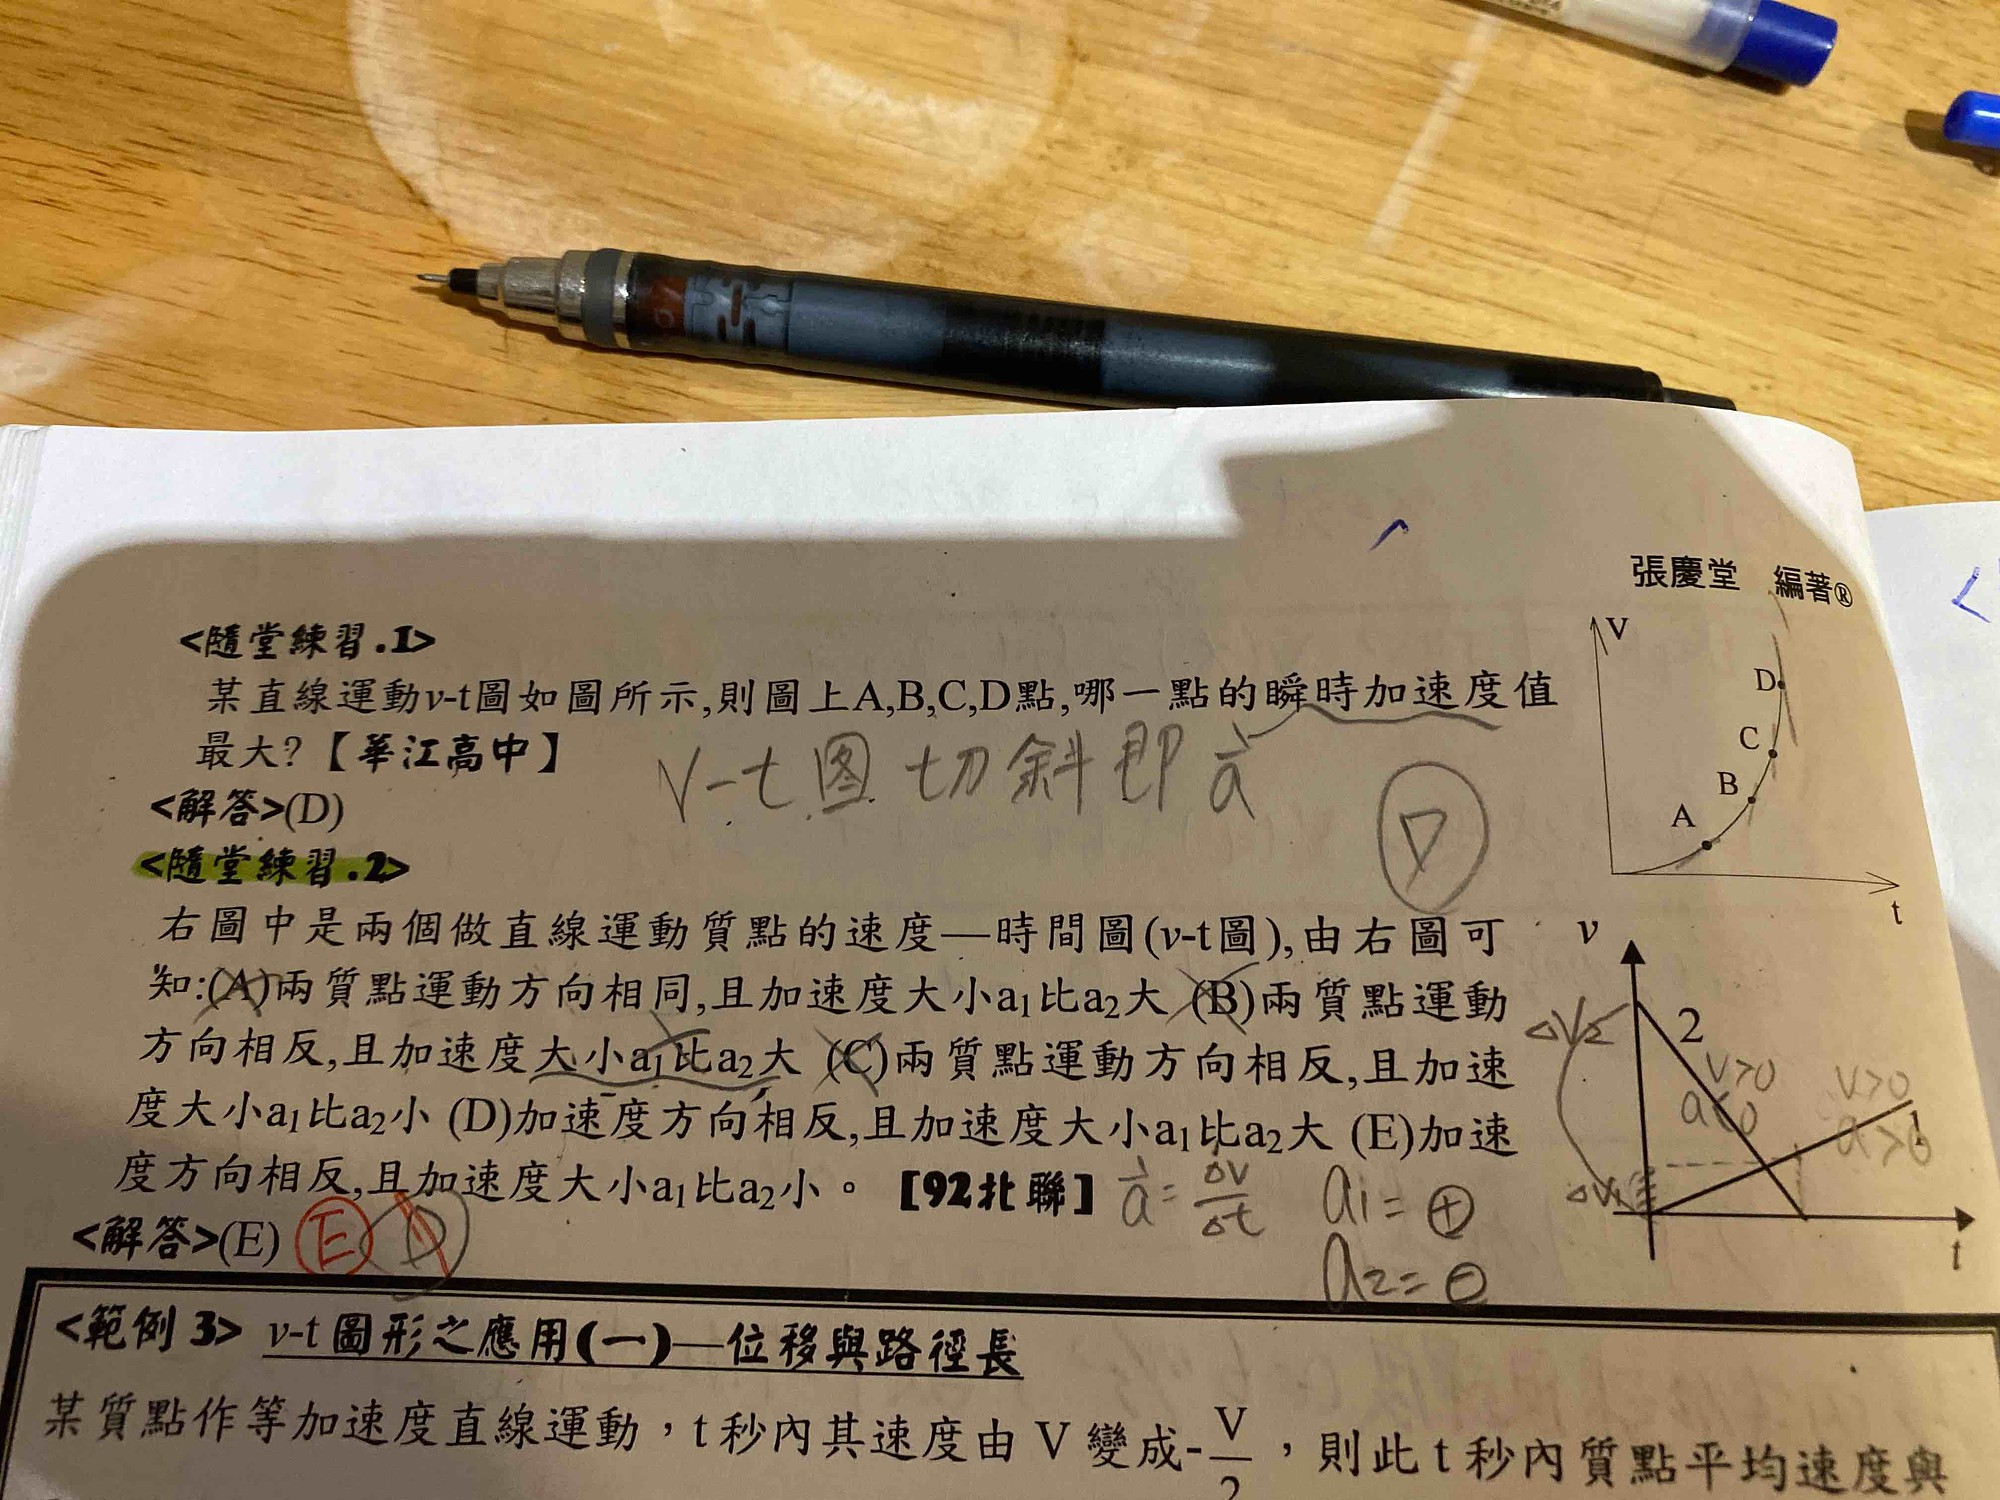 張慶堂 編著®
<隨堂練習.1>
某直線運動v-t圖如圖所示,則圖上A,B,C,D點,哪一點的瞬時加速度值
最大?【華江高中】
V-t图切斜即a
<解答>(D)
D
V
D
C
B
A
t
<隨堂練習.2>
右圖中是兩個做直線運動質點的速度—時間圖(v-t圖),由右圖可
知:(A)兩質點運動方向相同,且加速度大小a₁比a₂大 (B)兩質點運動
方向相反,且加速度大小a₁比a₂大 (C)兩質點運動方向相反,且加速
度大小a₁比a₂小 (D)加速度方向相反,且加速度大小a₁比a₂大 (E)加速
度方向相反,且加速度大小a₁比a₂小。 [92北聯]
a=ΔV/Δt
a1=⊕
a2=⊖
<解答>(E) E D
v
2
ΔV2
V>0
a<0
V>0
a>0
1
ΔV1
t
<範例 3> v-t 圖形之應用(一)—位移與路徑長
某質點作等加速度直線運動，t 秒內其速度由 V 變成-V/2，則此 t 秒內質點平均速度與